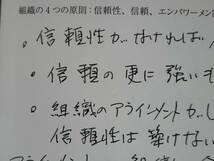 組織の４つの原則：信頼性、信頼、エンパワーメン
・信頼性がなければ
・信頼の更に強いも
・組織のアラインメントがし
信頼性は築けない